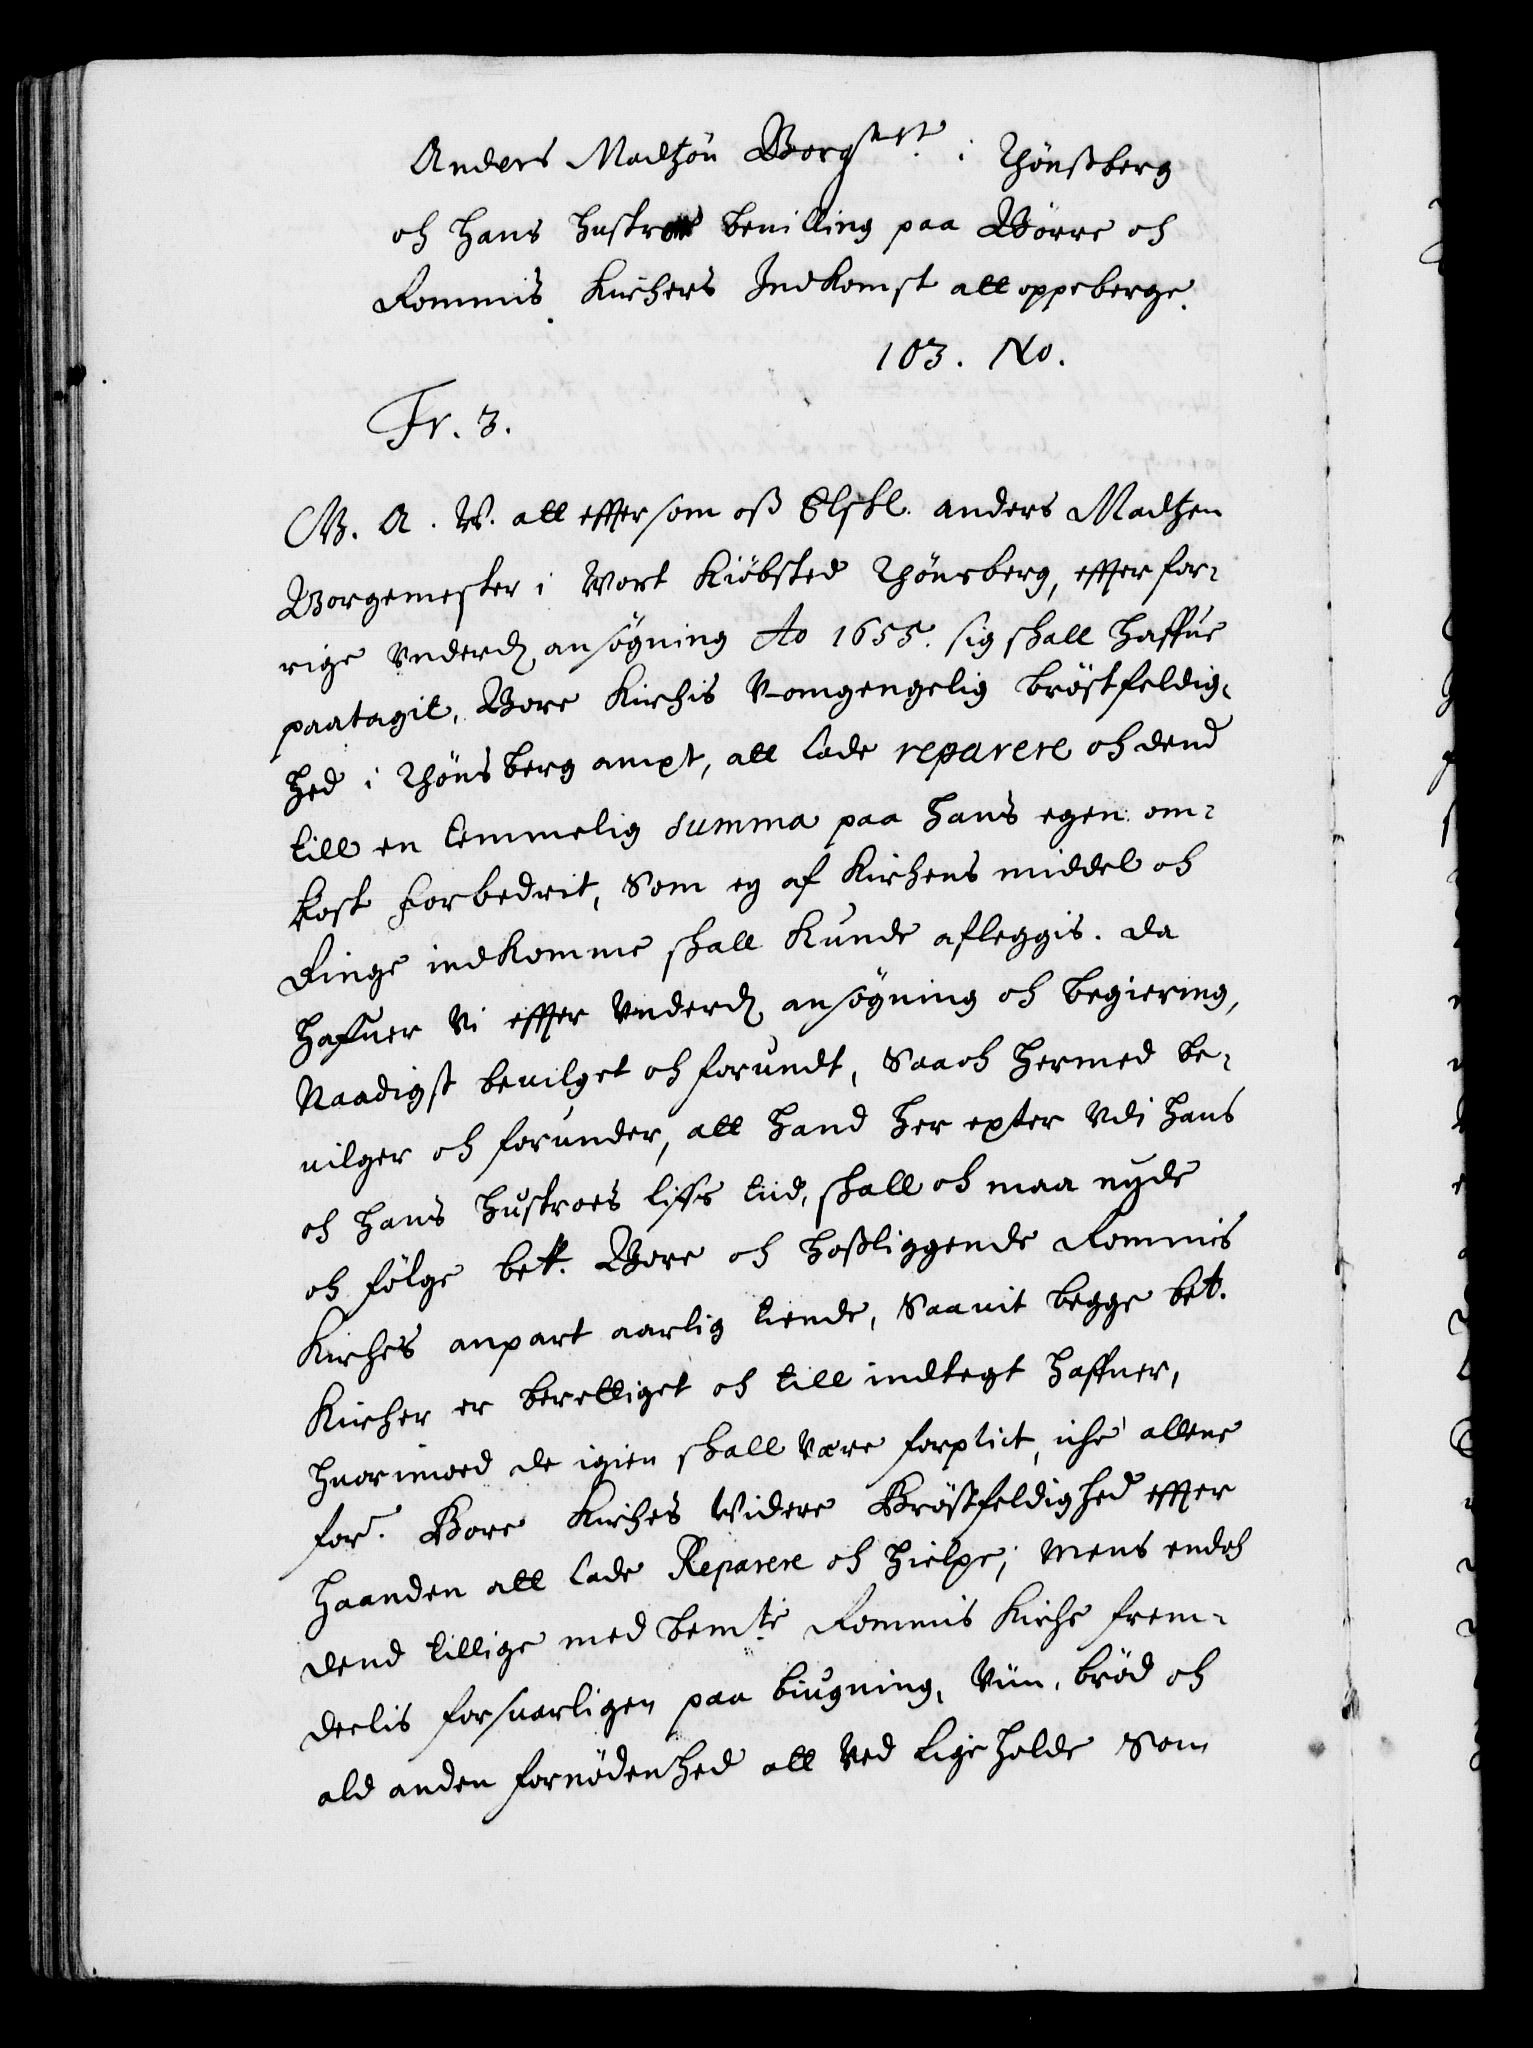 Anders Madtzøn Borgmest: i Thønßberg
och hans hustroes beuilling paa Børre och
Rommis Kirchers Indkomst att oppeberge.
103. No.
Fr. 3.
G. A. W. att effter som oß Elskl. anders Madtzen
Borgemester i Wort Kiøbsted Thønsberg, effter for¬
rige Vnderd. ansøgning Ao 1655. sig skall haffue
paatagit, Bore Kirchis V-omgengelig brøstfeldig¬
hed i Thønsberg ampt, att lade reparere och dend
till en temmelig summa paa hans egen om¬
kost forbedrit, Som ey af Kirchens middel och
Ringe indkomme skall Kunde afleggis. Da
haffuer Vi effter Vnderd. ansøgning och begiering,
Naadigst beuilget och forundt, Saa och hermed be¬
uilger och forunder, att hand her epter Vdi hans
och hans hustroes liffs tid, skall och maa nyde
och følge bete. Bore och hosliggende Rommis
Kirches anpart aarlig tiende, Saauit begge bet.
Kircher er berettiget och till indtegt haffuer,
huorimoed de igien skall Være forplict, iche allene
for.e Bore Kirches Widere Brøstfeldighed effter
haanden att lade Reparere och hielpe; Mens endoch
dend tillige med bemte Rommis Kirche frem¬
deelis forsuarligen paa biugning, Viin, brød och
ald anden fornødenhed att Ved lige holde Som